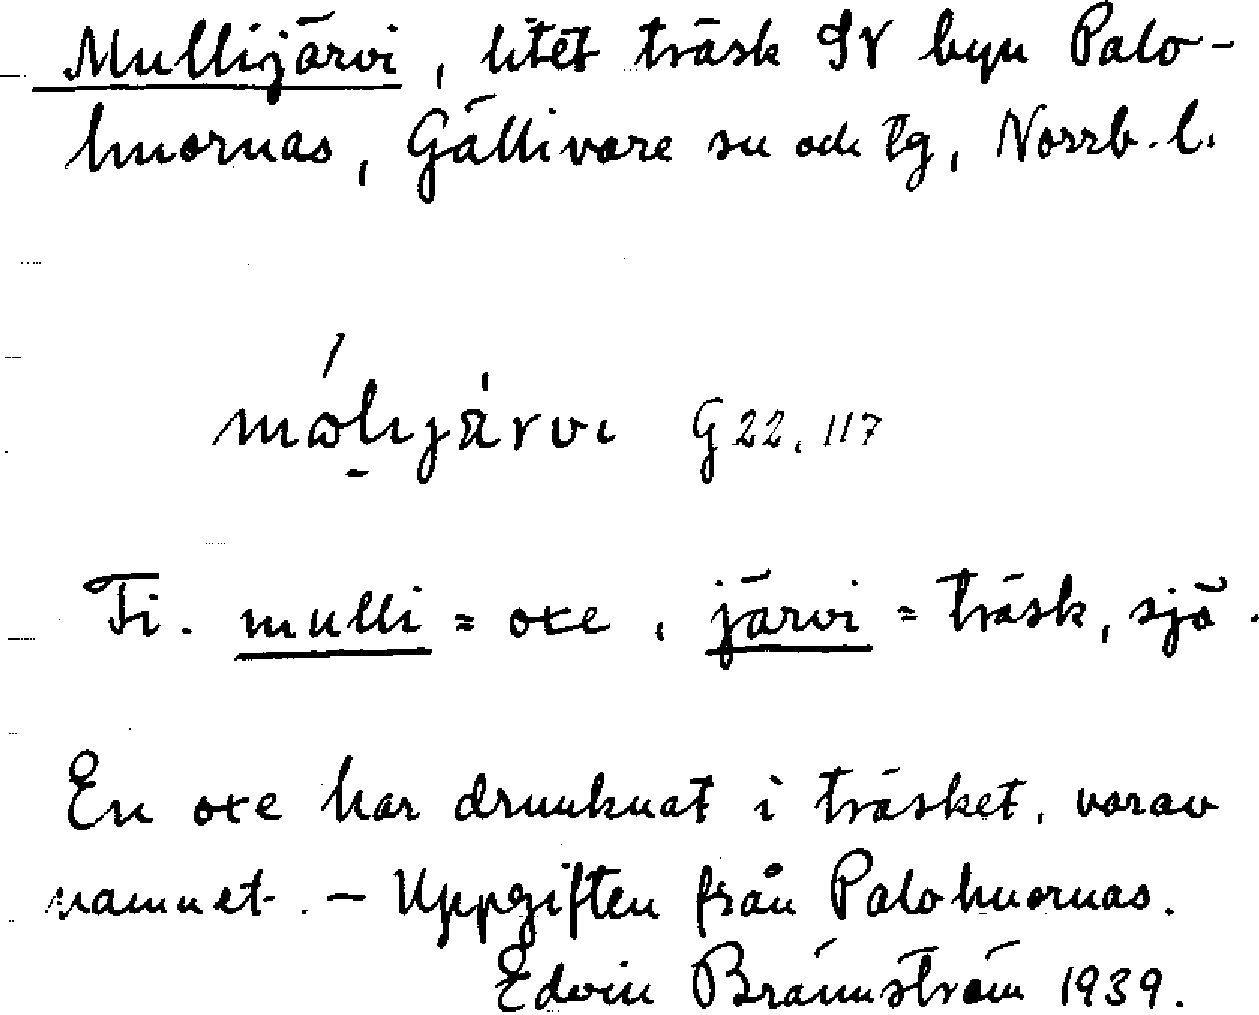 Mullijärvi, litet träsk SV byn Palo-
huornas, Gällivare sn och tg, Norrb. l.
G 22, 117
Fi. mulli = oxe, järvi = träsk, sjö.
En oxe har drunknat i träsket, varav
namnet. – Uppgiften från Palohuornas.
Edvin Brännström 1939.